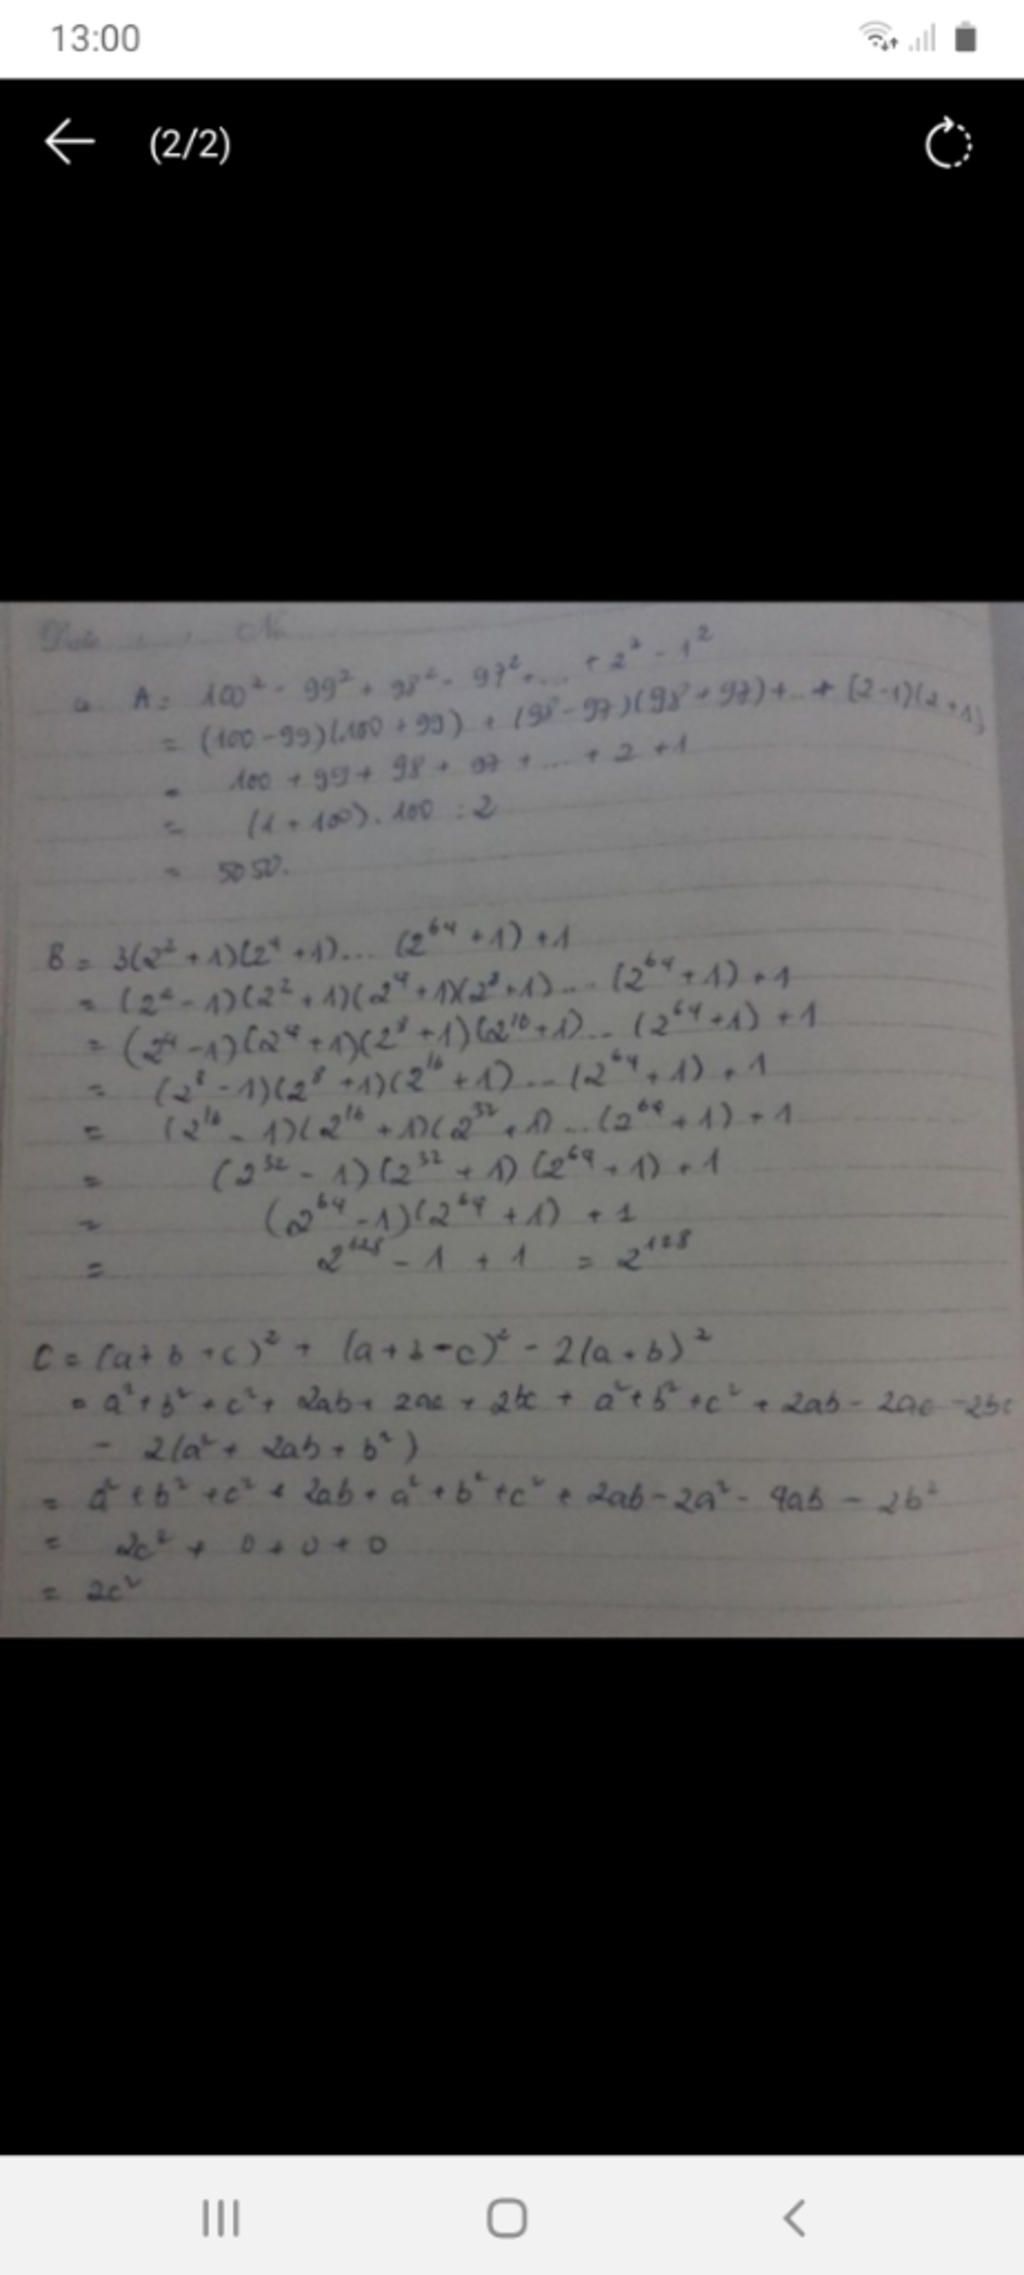 13:00
(2/2)
Date No
a. A = 100² - 99² + 98² - 97² + ... + 2² - 1²
= (100-99)(100+99) + (98-97)(98+97) + ... + (2-1)(2+1)
= 100 + 99 + 98 + 97 + ... + 2 + 1
= (1+100).100 : 2
= 5050.
B = 3(2²+1)(2⁴+1)... (2⁶⁴+1)+1
= (2²-1)(2²+1)(2⁴+1)(2⁸+1)... (2⁶⁴+1)+1
= (2⁴-1)(2⁴+1)(2⁸+1)(2¹⁶+1)... (2⁶⁴+1)+1
= (2⁸-1)(2⁸+1)(2¹⁶+1)... (2⁶⁴+1)+1
= (2¹⁶-1)(2¹⁶+1)(2³²+1)... (2⁶⁴+1)+1
= (2³²-1)(2³²+1)(2⁶⁴+1)+1
= (2⁶⁴-1)(2⁶⁴+1)+1
= 2¹²⁸ - 1 + 1 = 2¹²⁸
C = (a+b+c)² + (a+b-c)² - 2(a+b)²
= a²+b²+c²+2ab+2ac+2bc+a²+b²+c²+2ab-2ac-2bc
- 2(a²+2ab+b²)
= a²+b²+c²+2ab+a²+b²+c²+2ab-2a²-4ab-2b²
= 2c²+0+0+0
= 2c²